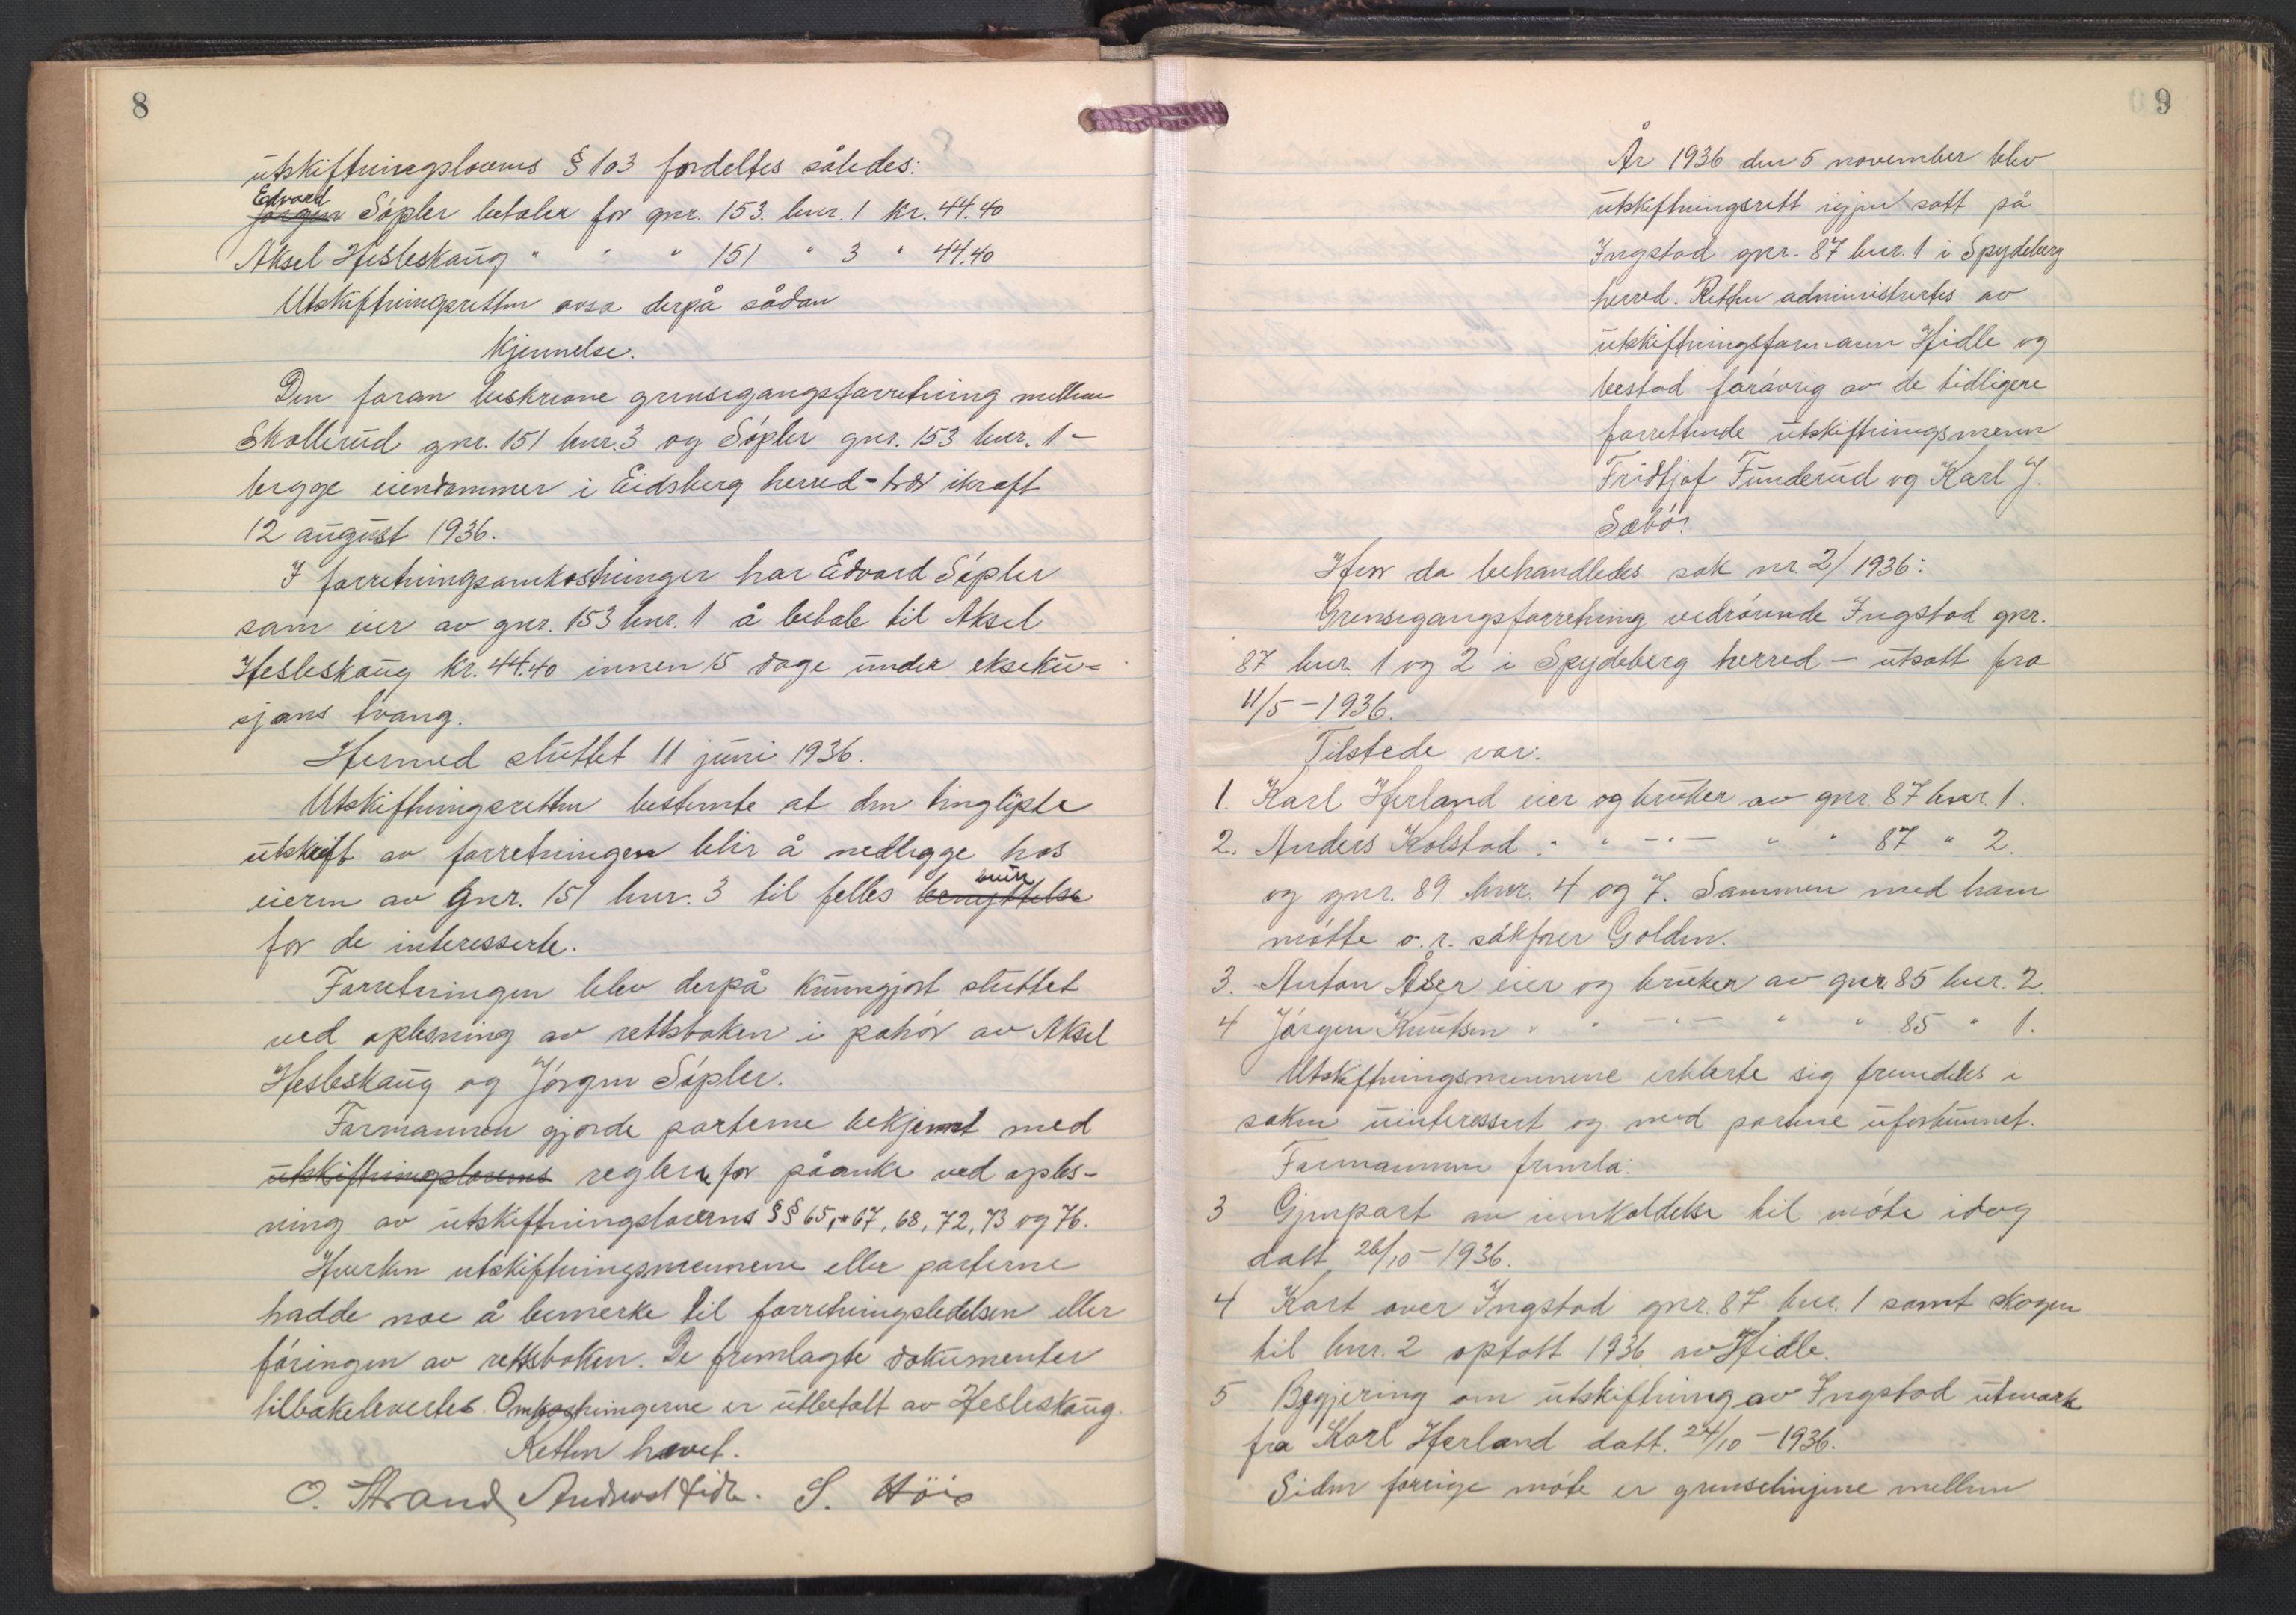 8
utskiftningslovens § 103 fordeltes således:
Edvard
Jørgen Söpler betaler for gnr. 153. bnr. 1 kr. 44.40
Aksel Hesleskaug " " " 151 " 3 " 44.40
Utskiftningsretten avsa derpå sådan
kjennelse.
Den foran beskrevne grensegangsforretning mellem
Skollerud gnr. 151 bnr. 3 og Söpler gnr. 153 bnr. 1 -
begge eiendommer i Eidsberg herred - trær ikraft
12 august 1936.
I forretningsomkostninger har Edvard Söpler
som eier av gnr. 153 bnr. 1 å betale til Aksel
Hesleskaug kr. 44.40 innen 15 dage underekseku-
sjons tvang.
Hermed sluttet 11 juni 1936.
Utskiftningsretten bestemte at den tinglyste
utskrift av forretningen blir å nedlegge hos
eieren av gnr. 151 bnr. 3 til felles benyttelse
for de interesserte.
Forretningen blev derpå kunngjort sluttet
ved oplesning av rettsboken i påhör av Aksel
Hesleskaug og Jörgen Söpler.
Formannen gjorde parterne bekjennt med
utskiftningslovens reglene for påanke ved oples-
ning av utskiftningslovens §§ 65, 67, 68, 72, 73 og 76.
Hverken utskiftningsmennene eller parterne
hadde noe å bemerke til forretningsledelsen eller
föringen av rettsboken. De fremlagte dokumenter
tilbakelevertes. Omkostningerne er utbetalt av Hesleskaug.
Retten hævet.
O. Strand Andreas Hidle. S. Höie
9
År 1936 den 5 november blev
utskiftningsrett igjen satt på
Ingstad gnr. 87 bnr. 1 i Spydeberg
herred. Retten administrertes av
utskiftningsformann Hidle og
bestod forövrig av de tidligere
forrettende utskiftningsmenn
Fridtjof Funderud og Karl J.
Sæbö.
Hvor da behandledes sak nr 2/1936:
Grensegangsforretning vedrörende Ingstad gnr.
87 bnr. 1 og 2 i Spydeberg herred - utsatt fra
11/5 - 1936.
Tilstede var:
1. Karl Herland eier og bruker av gnr. 87 bnr. 1.
2. Anders Kolstad " " -"- " " 87 " 2.
og gnr. 89 bnr. 4 og 7. Sammen med ham
mötte o. r. sakförer Golden.
3. Anton Åser eier og bruker av gnr. 85 bnr. 2.
4 Jörgen Knutsen " " -"- " " 85 " 1.
Utskiftningsmennene erklærte sig fremdeles i
saken uinteressert og med partene ubeslektet.
Formannen fremla:
3 Gjenpart av innkaldelse til möte idag
datt. 26/10 - 1936.
4 Kart over Ingstad gnr. 87 bnr. 1 samt skogen
til bnr. 2 optatt 1936 av Hidle.
5 Begjering om utskiftning av Ingstad utmark
fra Karl Herland datt. 24/10 - 1936.
Siden forrige möte er grenselinjene mellem